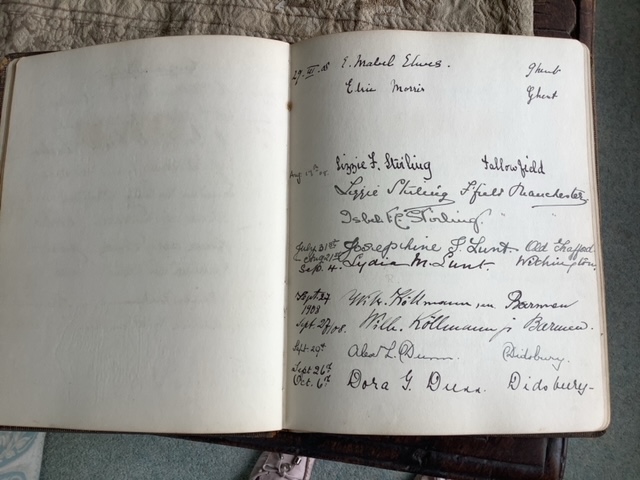 29. III. 08 E. Mabel Elwes. Ghent
Elsie Morris Ghent
Aug 13th 08. Lizzie F. Stirling Fallowfield
Lizzie Stirling Ffield Manchester
Isabel C. Stirling. " "
July 31st Josephine L. Lunt. Old Trafford
Aug 21st
Sep. 4. Lydia M. Lunt. Withington
Sept. 27 Wilh. Köllmann, sen Barmen
1908
Sept 27/08. Wilh. Köllmann j. Barmen.
Sept. 29th Alex L. Dunn. Didsbury.
Sept 26th
Oct. 6th Dora G. Dunn. Didsbury-